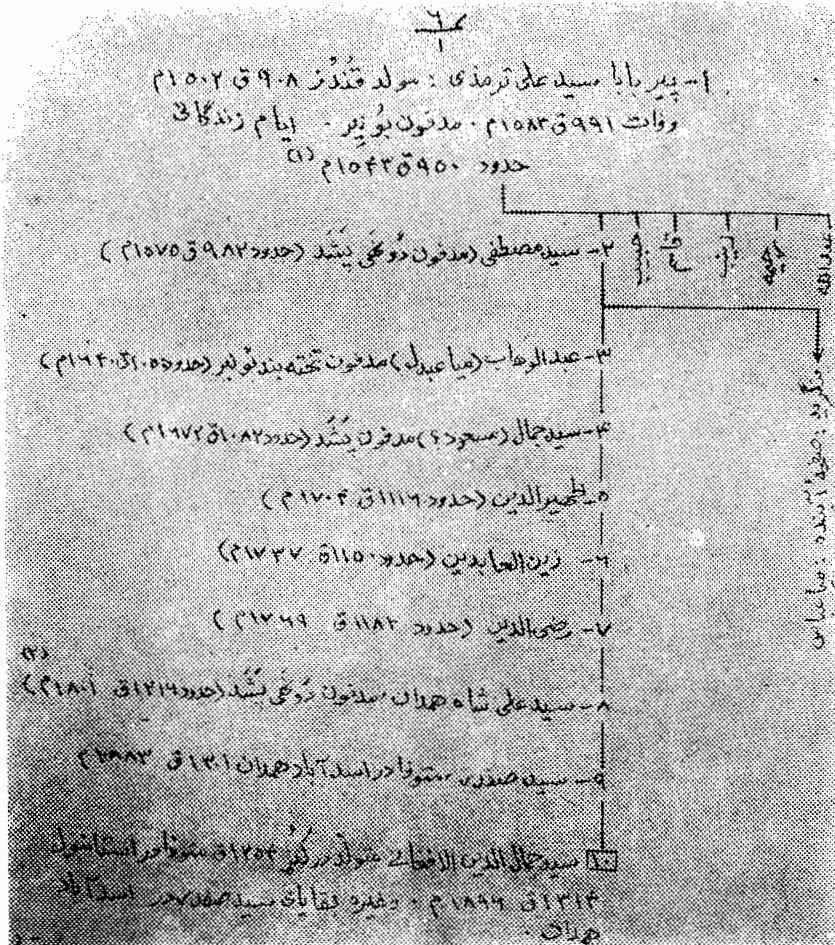 ۶
۱
۱- پیر بابا سید علی ترمذی : مولد قُندُز ۹۰۸ ق ۱۵۰۲م
وفات ۹۹۱ق ۱۵۸۳م . مدفون بُونیر . ایام زندگانی
حدود ۹۵۰ ق ۱۵۴۳م (۱)
عبدالله
۲- سید مصطفی (مدفون دُوغی پشَد (حدود ۹۸۲ ق ۱۵۷۵م)
۳- عبدالوهاب (میا عبدل) مدفون تخته بند بُونیر (حدود ۱۰۵۰ق ۱۶۴۰م)
۴- سید جمال (مسعود ؟) مدفون پشَد (حدود ۱۰۸۲ق ۱۶۷۲م)
۵- ظهیرالدین (حدود ۱۱۱۶ق ۱۷۰۴م)
۶- زین العابدین (حدود ۱۱۵۰ق ۱۷۳۷م)
۷- رضی الدین (حدود ۱۱۸۲ ق ۱۷۶۹م)
۸- سید علی شاه همدان مدفون دُوغی پشَد (حدود ۱۲۱۶ق ۱۸۰۱م) (۲)
۹- سید صفدر متوفا در اسدآباد همدان ۱۳۰۱ ق ۱۸۸۳م
۱۰ سید جمال الدین الافغانی متولد در کنر ۱۲۵۴ق متوفا در استانبول
۱۳۱۴ق ۱۸۹۶م . وغیره بقایای سید صفدر در اسدآباد
همدان .
بنگرید : صفحه آینده : میا عباس